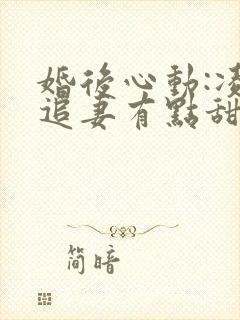 婚後心動:凌
追妻有點甜
简暗